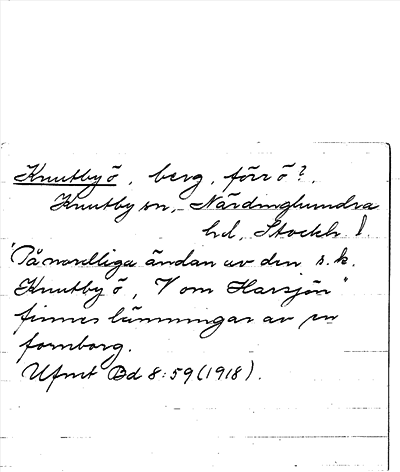 Knutby ö, berg, förr ö?,
Knutby sn, Närdinghundra
hd, Stockh. l
"På nordliga ändan av den s.k.
Knutby ö, V om Harsjön"
finnes lämningar av en
fornborg.
Ufmt Bd 8:59 (1918).